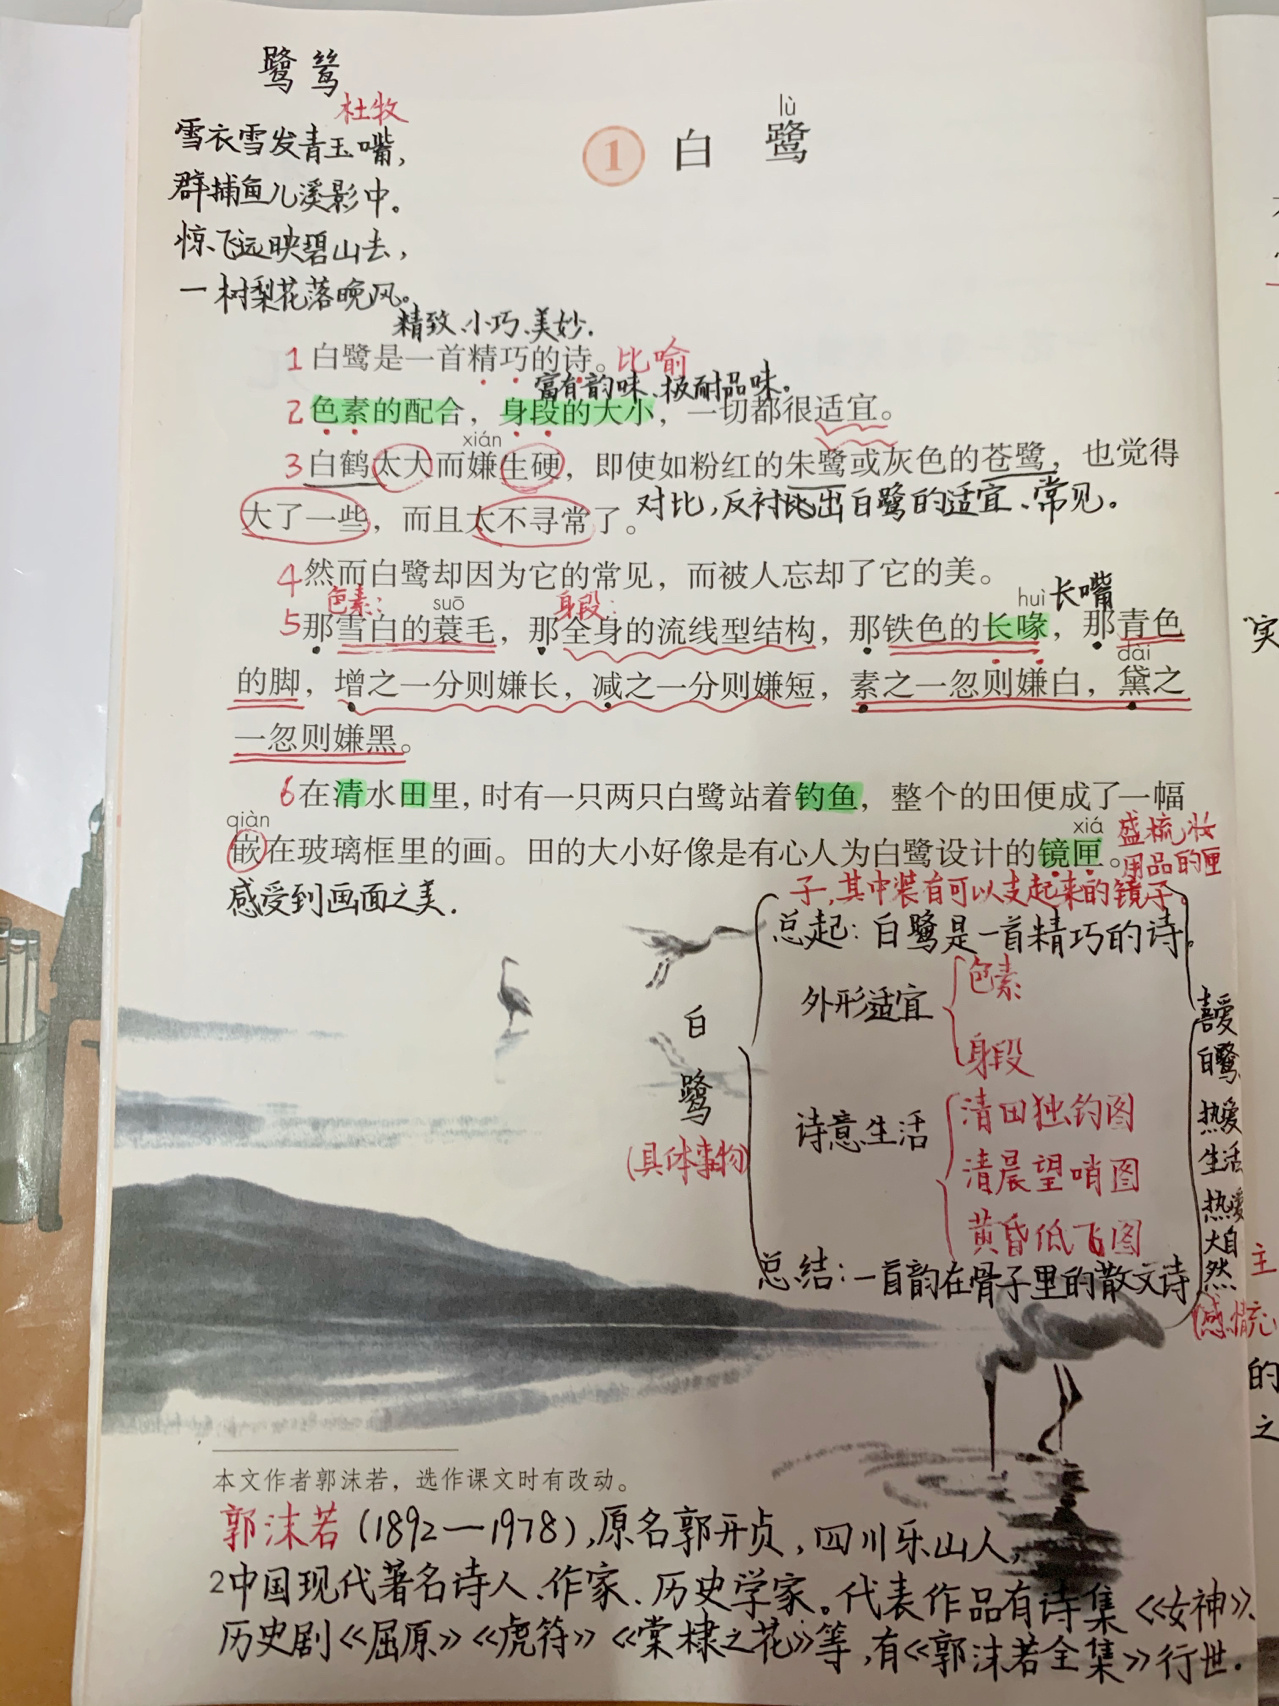 鹭鸶
杜牧
雪衣雪发青玉嘴，
群捕鱼儿溪影中。
惊飞远映碧山去，
一树梨花落晚风。
lù
1 白鹭
精致、小巧、美妙.
1 白鹭是一首精巧的诗。比喻
富有韵味、极耐品味。
2 色素的配合，身段的大小，一切都很适宜。
xián
3 白鹤太大而嫌生硬，即使如粉红的朱鹭或灰色的苍鹭，也觉得
大了一些，而且太不寻常了。对比，反衬比出白鹭的适宜、常见。
4 然而白鹭却因为它的常见，而被人忘却了它的美。
色素： suō 身段： huì 长嘴
5 那雪白的蓑毛，那全身的流线型结构，那铁色的长喙，那青色
dài
的脚，增之一分则嫌长，减之一分则嫌短，素之一忽则嫌白，黛之
一忽则嫌黑。
6 在清水田里，时有一只两只白鹭站着钓鱼，整个的田便成了一幅
qiàn xiá
嵌在玻璃框里的画。田的大小好像是有心人为白鹭设计的镜匣。
盛梳妆
用品的匣
子，其中装有可以支起来的镜子。
感受到画面之美.
白鹭
(具体事物)
总起：白鹭是一首精巧的诗。
外形适宜
色素
身段
诗意生活
清田独钓图
清晨望哨图
黄昏低飞图
总结：一首韵在骨子里的散文诗
喜爱
白鹭
热爱
生活
热爱
大自
然
(感情)
本文作者郭沫若，选作课文时有改动。
郭沫若（1892—1978），原名郭开贞，四川乐山人，
2中国现代著名诗人、作家、历史学家。代表作品有诗集《女神》、
历史剧《屈原》《虎符》《棠棣之花》等，有《郭沫若全集》行世.
实
主
的
之